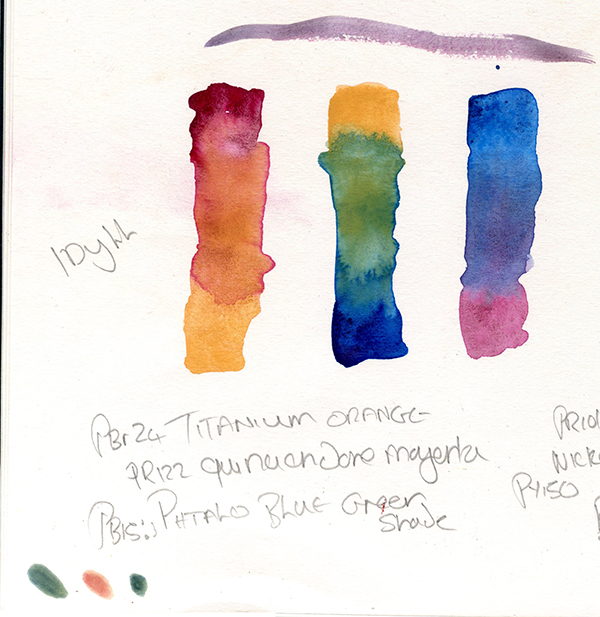 IDyLL
PBr24 TITANIUM ORANGE
PR122 quinacridone magenta
PB15:3 PHTALO BLUE Green
Shade
PR101
NICK
PY150